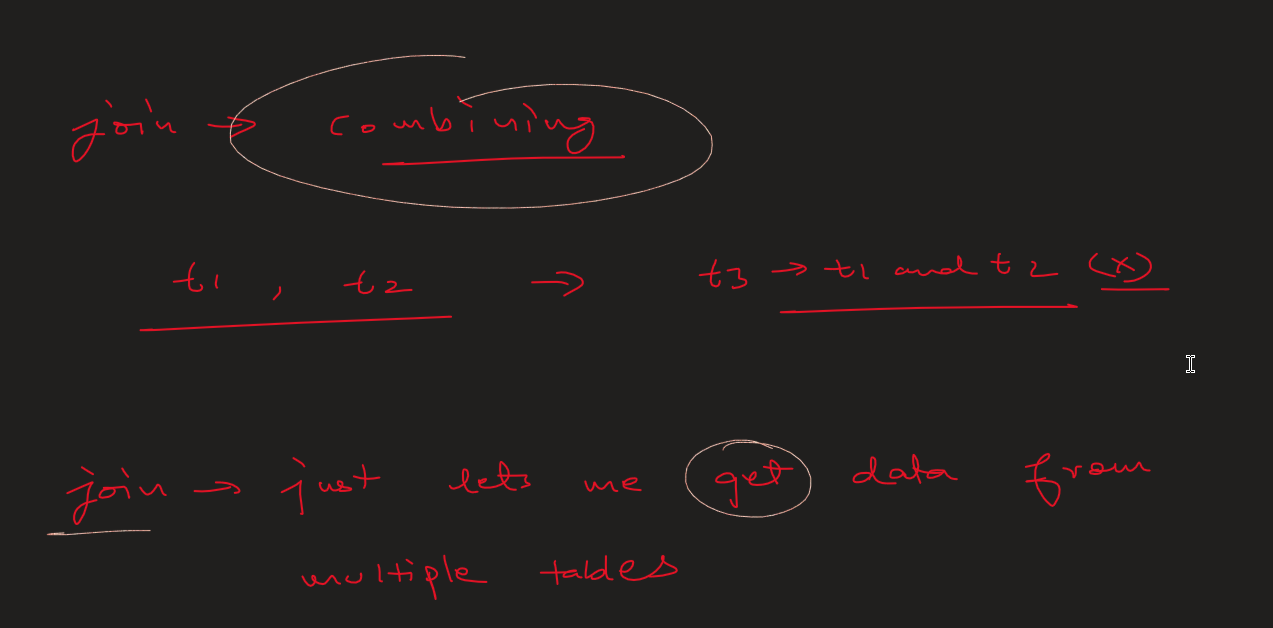 join → combining
t1 , t2 → t3 → t1 and t2 (x)
join → just lets me get data from
multiple tables